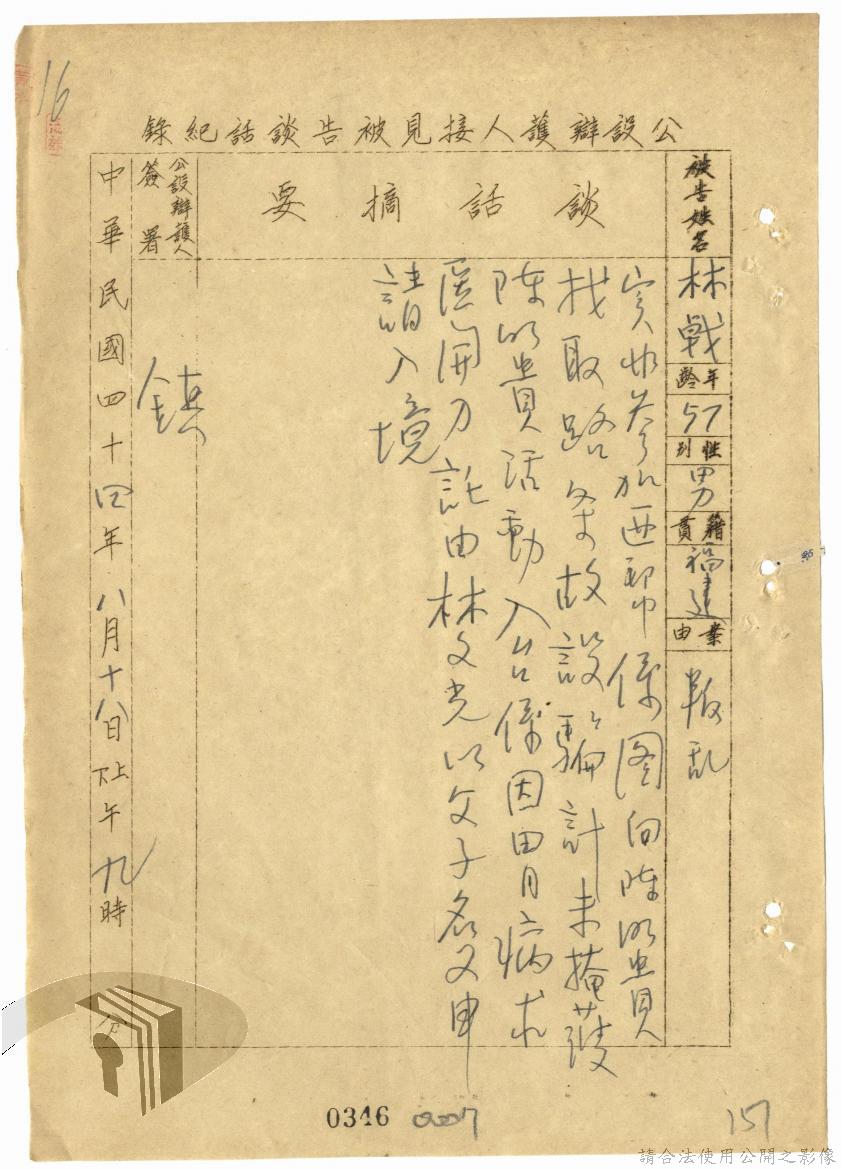 16
公設辯護人接見被告談話紀錄
被告姓名
林戟
年齡
57
性別
男
籍貫
福建
案由
叛乱
談話摘要
實非參加匪幫係图向陈明貴
找取路条故設騙計未掩護
陈明貴活動入台係因胃病求
医開刀託由林文光以父子名义申
請入境
公設辯護人
簽署
鎮
中華民國四十四年八月十八日上下午九時 分
0346
0007
157
請合法使用公開之影像